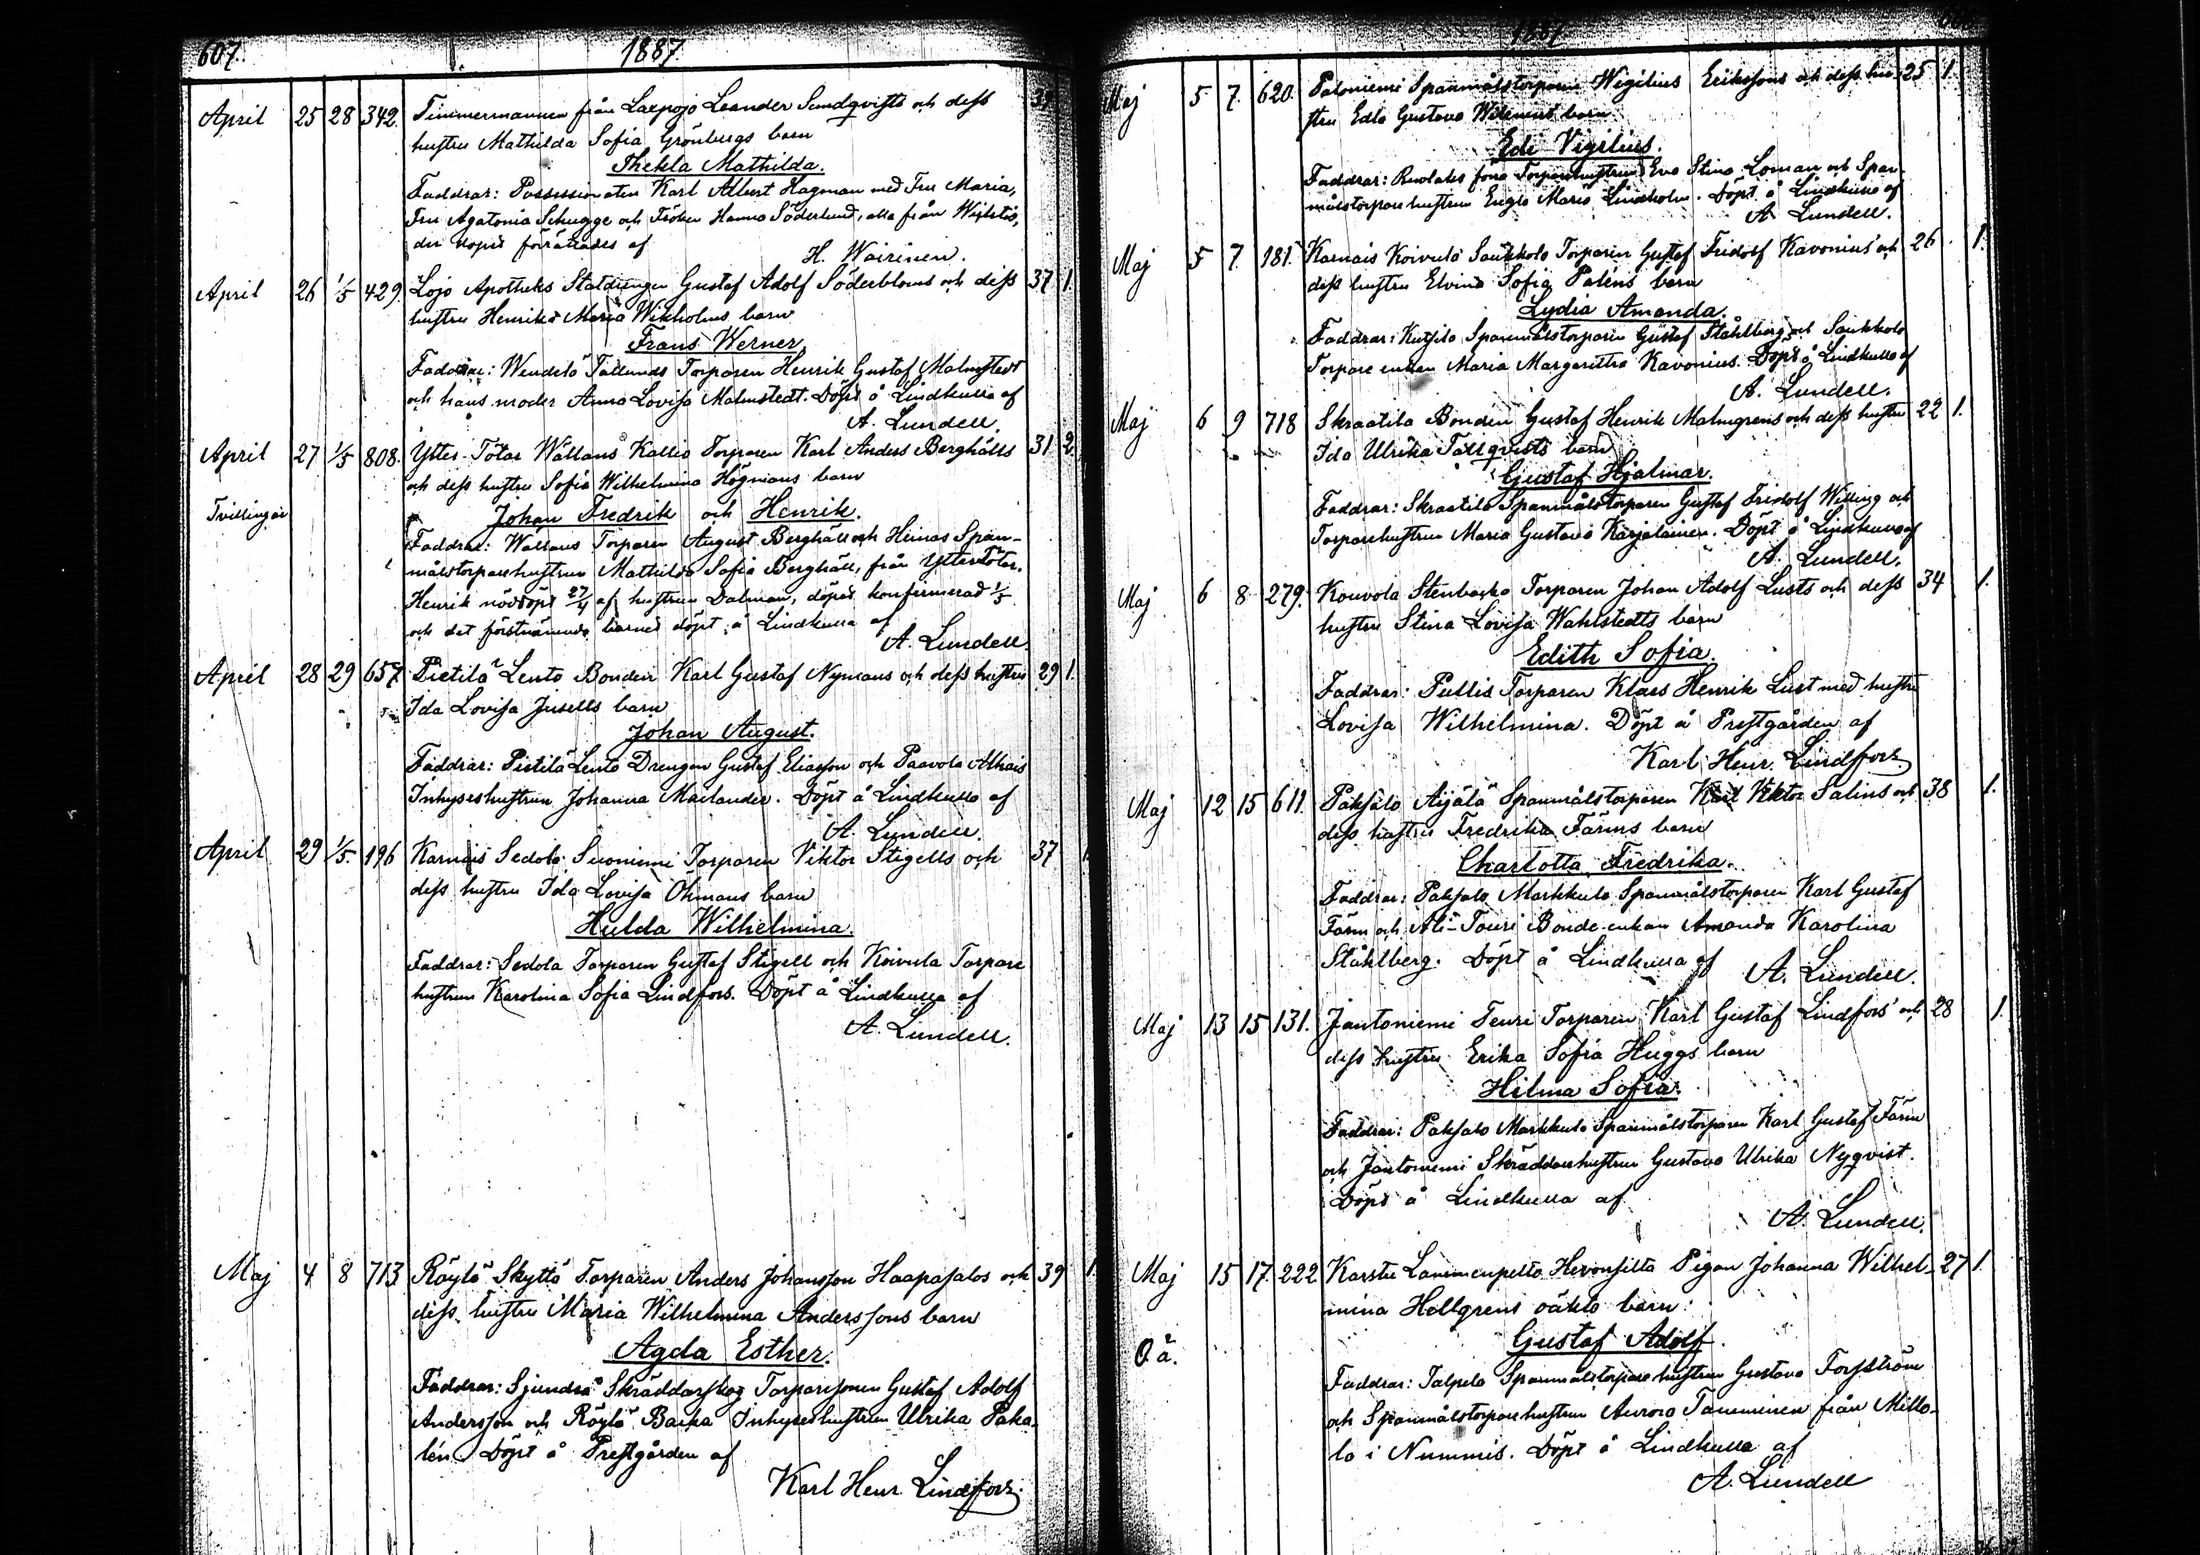 607.
1887.
April 25 28 342. Timmermannen från Laxpojo Leander Sundqvists och dess
hustru Mathilda Sofia Grönbergs barn
Thekla Mathilda.
Faddrar: Possessionaten Karl Albert Hagman med Fru Maria,
Fru Agatonia Schugge och Fröken Hanna Söderlund, alla från Wichtis,
der dopet förrättades af
H. Wairinen.
April 26 1/5 429. Lojo Apotheks Staldrängen Gustaf Adolf Söderbloms och dess 37 1.
hustru Henrika Maria Wikholms barn
Frans Werner.
Faddrar: Wendelä Tallunds Torparen Henrik Gustaf Malmstedt
och hans moder Anna Lovisa Malmstedt. Döpt å Lindkulla af
A. Lundell.
April 27 1/5 808. Ytter-Tötar Wällans Kallio Torparen Karl Anders Berghälls 31 2.
och dess hustru Sofia Wilhelmina Högmans barn
Tvillingar Johan Fredrik och Henrik.
Faddrar: Wällans Torparen August Berghäll och Heinas Span-
målstorparehustrun Mathilda Sofia Berghäll, från Ytter Tötar.
Henrik nöddöpt 27/4 af hustrun Dalman, döpet konfirmerad 1/5
och det förstnämnda barnet döpt å Lindkulla af
A. Lundell.
April 28 29 657. Pietilä Lento Bonden Karl Gustaf Nymans och dess hustru 29 1.
Ida Lovisa Jusells barn
Johan August.
Faddrar: Pietilä Lento Drengen Gustaf Eliasson och Paavola Alhais
Inhyseshustrun Johanna Mailander. Döpt å Lindkulla af
A. Lundell.
April 29 1/5. 196 Karnais Sedola Suoniemi Torparen Viktor Stigells och 37 1.
dess hustru Ida Lovisa Öhmans barn
Hulda Wilhelmina.
Faddrar: Sedola Torparen Gustaf Stigell och Koivula Torpare
hustrun Karolina Sofia Lindfors. Döpt å Lindkulla af
A. Lundell.
Maj 4 8 713 Röylä Skyttä Torparen Anders Johansson Haapasalos och 39 1.
dess hustru Maria Wilhelmina Anderssons barn
Agda Esther.
Faddrar: Sjundeå Skräddarskog Torparesonen Gustaf Adolf
Andersson och Röylä Backa Inhyseshustrun Ulrika Paka-
lén. Döpt å Prestgården af
Karl Henr. Lindfors.
1887
Maj 5 7. 620. Paloniemi Spanmålstorparen Wigilius Erikssons och dess hu- 25 1.
stru Edla Gustava Widenius barn
Edi Vigilius.
Faddrar: förra Torparehustrun Eva Stina Loman och Span-
målstorparehustrun Engla Maria Lindholm. Döpt å Lindkulla af
A. Lundell.
Maj 5 7. 181. Karnais Koivula Saukkola Torparen Gustaf Fridolf Kavonius och 26 1.
dess hustru Elvina Sofia Paléns barn
Lydia Amanda.
Faddrar: Kutsila Spanmålstorparen Gustaf Ståhlberg och Saukkola
Torpare enkan Maria Margaritha Kavonius. Döpt å Lindkulla af
A. Lundell.
Maj 6 9 718 Skraatila Bonden Gustaf Henrik Malmgrens och dess hustru 22 1.
Ida Ulrika Tallqvists barn
Gustaf Hjalmar.
Faddrar: Skraatila Spanmålstorparen Gustaf Fridolf Willing och
Torparehustrun Maria Gustava Karjalainen. Döpt å Lindkulla af
A. Lundell.
Maj 6 8 279. Kouvola Stenbacka Torparen Johan Adolf Lusts och dess 34 1.
hustru Stina Lovisa Wahlstedts barn
Edith Sofia.
Faddrar: Pullis Torparen Klaes Henrik Lust med hustru
Lovisa Wilhelmina. Döpt å Prestgården af
Karl Henr. Lindfors.
Maj 12 15 611. Paksalo Äijälä Spanmålstorparen Karl Viktor Salins och 38 1.
dess hustru Fredrika Färms barn
Charlotta Fredrika.
Faddrar: Paksalo Markkula Spanmålstorparen Karl Gustaf
Färm och Ali-Touri Bonde-enkan Amanda Karolina
Ståhlberg. Döpt å Lindkulla af
A. Lundell.
Maj 13 15 131. Jantoniemi Teuri Torparen Karl Gustaf Lindfors och 28 1.
dess hustru Erika Sofia Huggs barn
Hilma Sofia.
Faddrar: Paksalo Markkula Spanmålstorparen Karl Gustaf Färm
och Jantoniemi Skräddarehustrun Gustava Ulrika Nyqvist.
Döpt å Lindkulla af
A. Lundell.
Maj 15 17. 222 Karstu Lammenpelto Hevonsilta Pigan Johanna Wilhel- 27 1.
mina Hellgrens oäkta barn:
Oä. Gustaf Adolf.
Faddrar: Talpela Spanmålstorparehustrun Gustava Forsström
och Spanmålstorparehustrun Aurora Tamminen från Millo-
la i Nummis. Döpt å Lindkulla af
A. Lundell